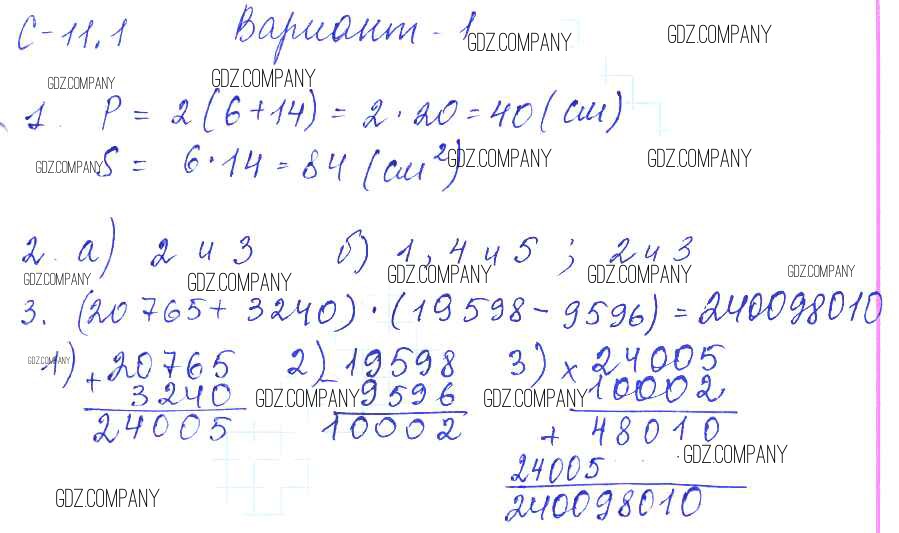 С-11.1 Вариант - 1
GDZ.COMPANY GDZ.COMPANY
GDZ.COMPANY GDZ.COMPANY
1. P = 2 (6+14) = 2 · 20 = 40 (см)
S = 6 · 14 = 84 (см²)
GDZ.COMPANY GDZ.COMPANY GDZ.COMPANY
2. а) 2 и 3 б) 1, 4 и 5 ; 2 и 3
GDZ.COMPANY GDZ.COMPANY GDZ.COMPANY GDZ.COMPANY GDZ.COMPANY
3. (20765 + 3240) · (19598 - 9596) = 240098010
1) 20765 2) 19598 3) 24005
GDZ.COMPANY
+ 3240 - 9596 × 10002
GDZ.COMPANY GDZ.COMPANY
24005 10002 + 48010
24005
GDZ.COMPANY
240098010
GDZ.COMPANY